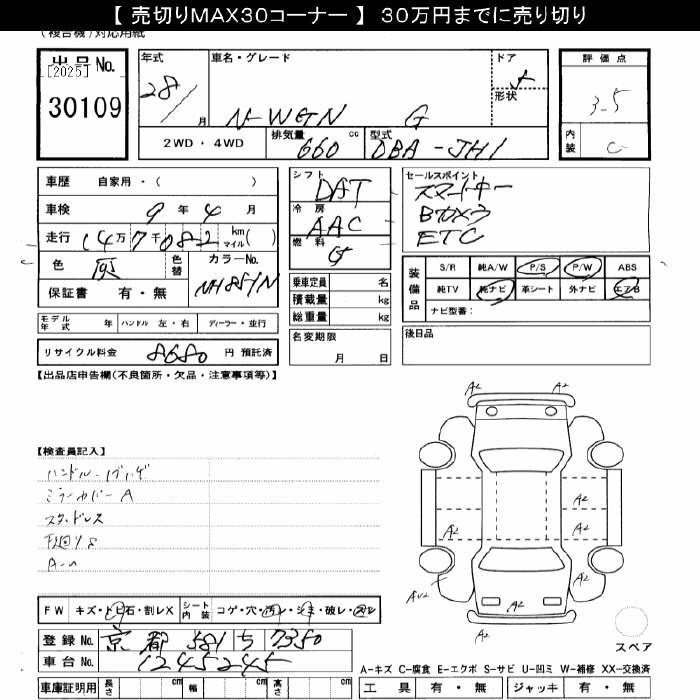 【 売切りMAX30コーナー 】 30万円までに売り切り
(複合機)対応用紙
出品No. 年式 車名・グレード ドア 評価点
[2025] 28/ 月 N-WGN G 5 形状 3.5
30109
2WD・4WD 排気量 cc 660 型式 DBA-JH1 内装 C
車歴 自家用・( )
シフト DAT
セールスポイント
スマートキー
Bカメラ
ETC
車検 9年 4月
冷房 AAC
走行 14万7千082 km マイル( )
燃料 G
色 灰 色替 カラーNo. NH851N
保証書 有・無
乗車定員 名
積載量 kg
総重量 kg
装備品 S/R 純A/W P/S P/W ABS
純TV 純ナビ 革シート 外ナビ エアB
ナビ型番:
モデル年式 年 ハンドル 左・右 ディーラー・並行
名変期限 月 日
後日品
リサイクル料金 8680 円 預託済
【出品店申告欄(不良箇所・欠品・注意事項等)】
A2 A2
【検査員記入】
ミラーカバーA
スタッドレス
A2
A2 A2
下廻りS
A2
A2 A2
FW キズ・トビ石・割レX シート内装 コゲ・穴・汚レ・シミ・破レ・スレ
登録No. 京都 581 5 7350
車台No. 1245245
スペア
A-キズ C-腐食 E-エクボ S-サビ U-凹ミ W-補修 XX-交換済
車庫証明用 長さ cm 幅 cm 高さ cm 工具 有・無 ジャッキ 有・無